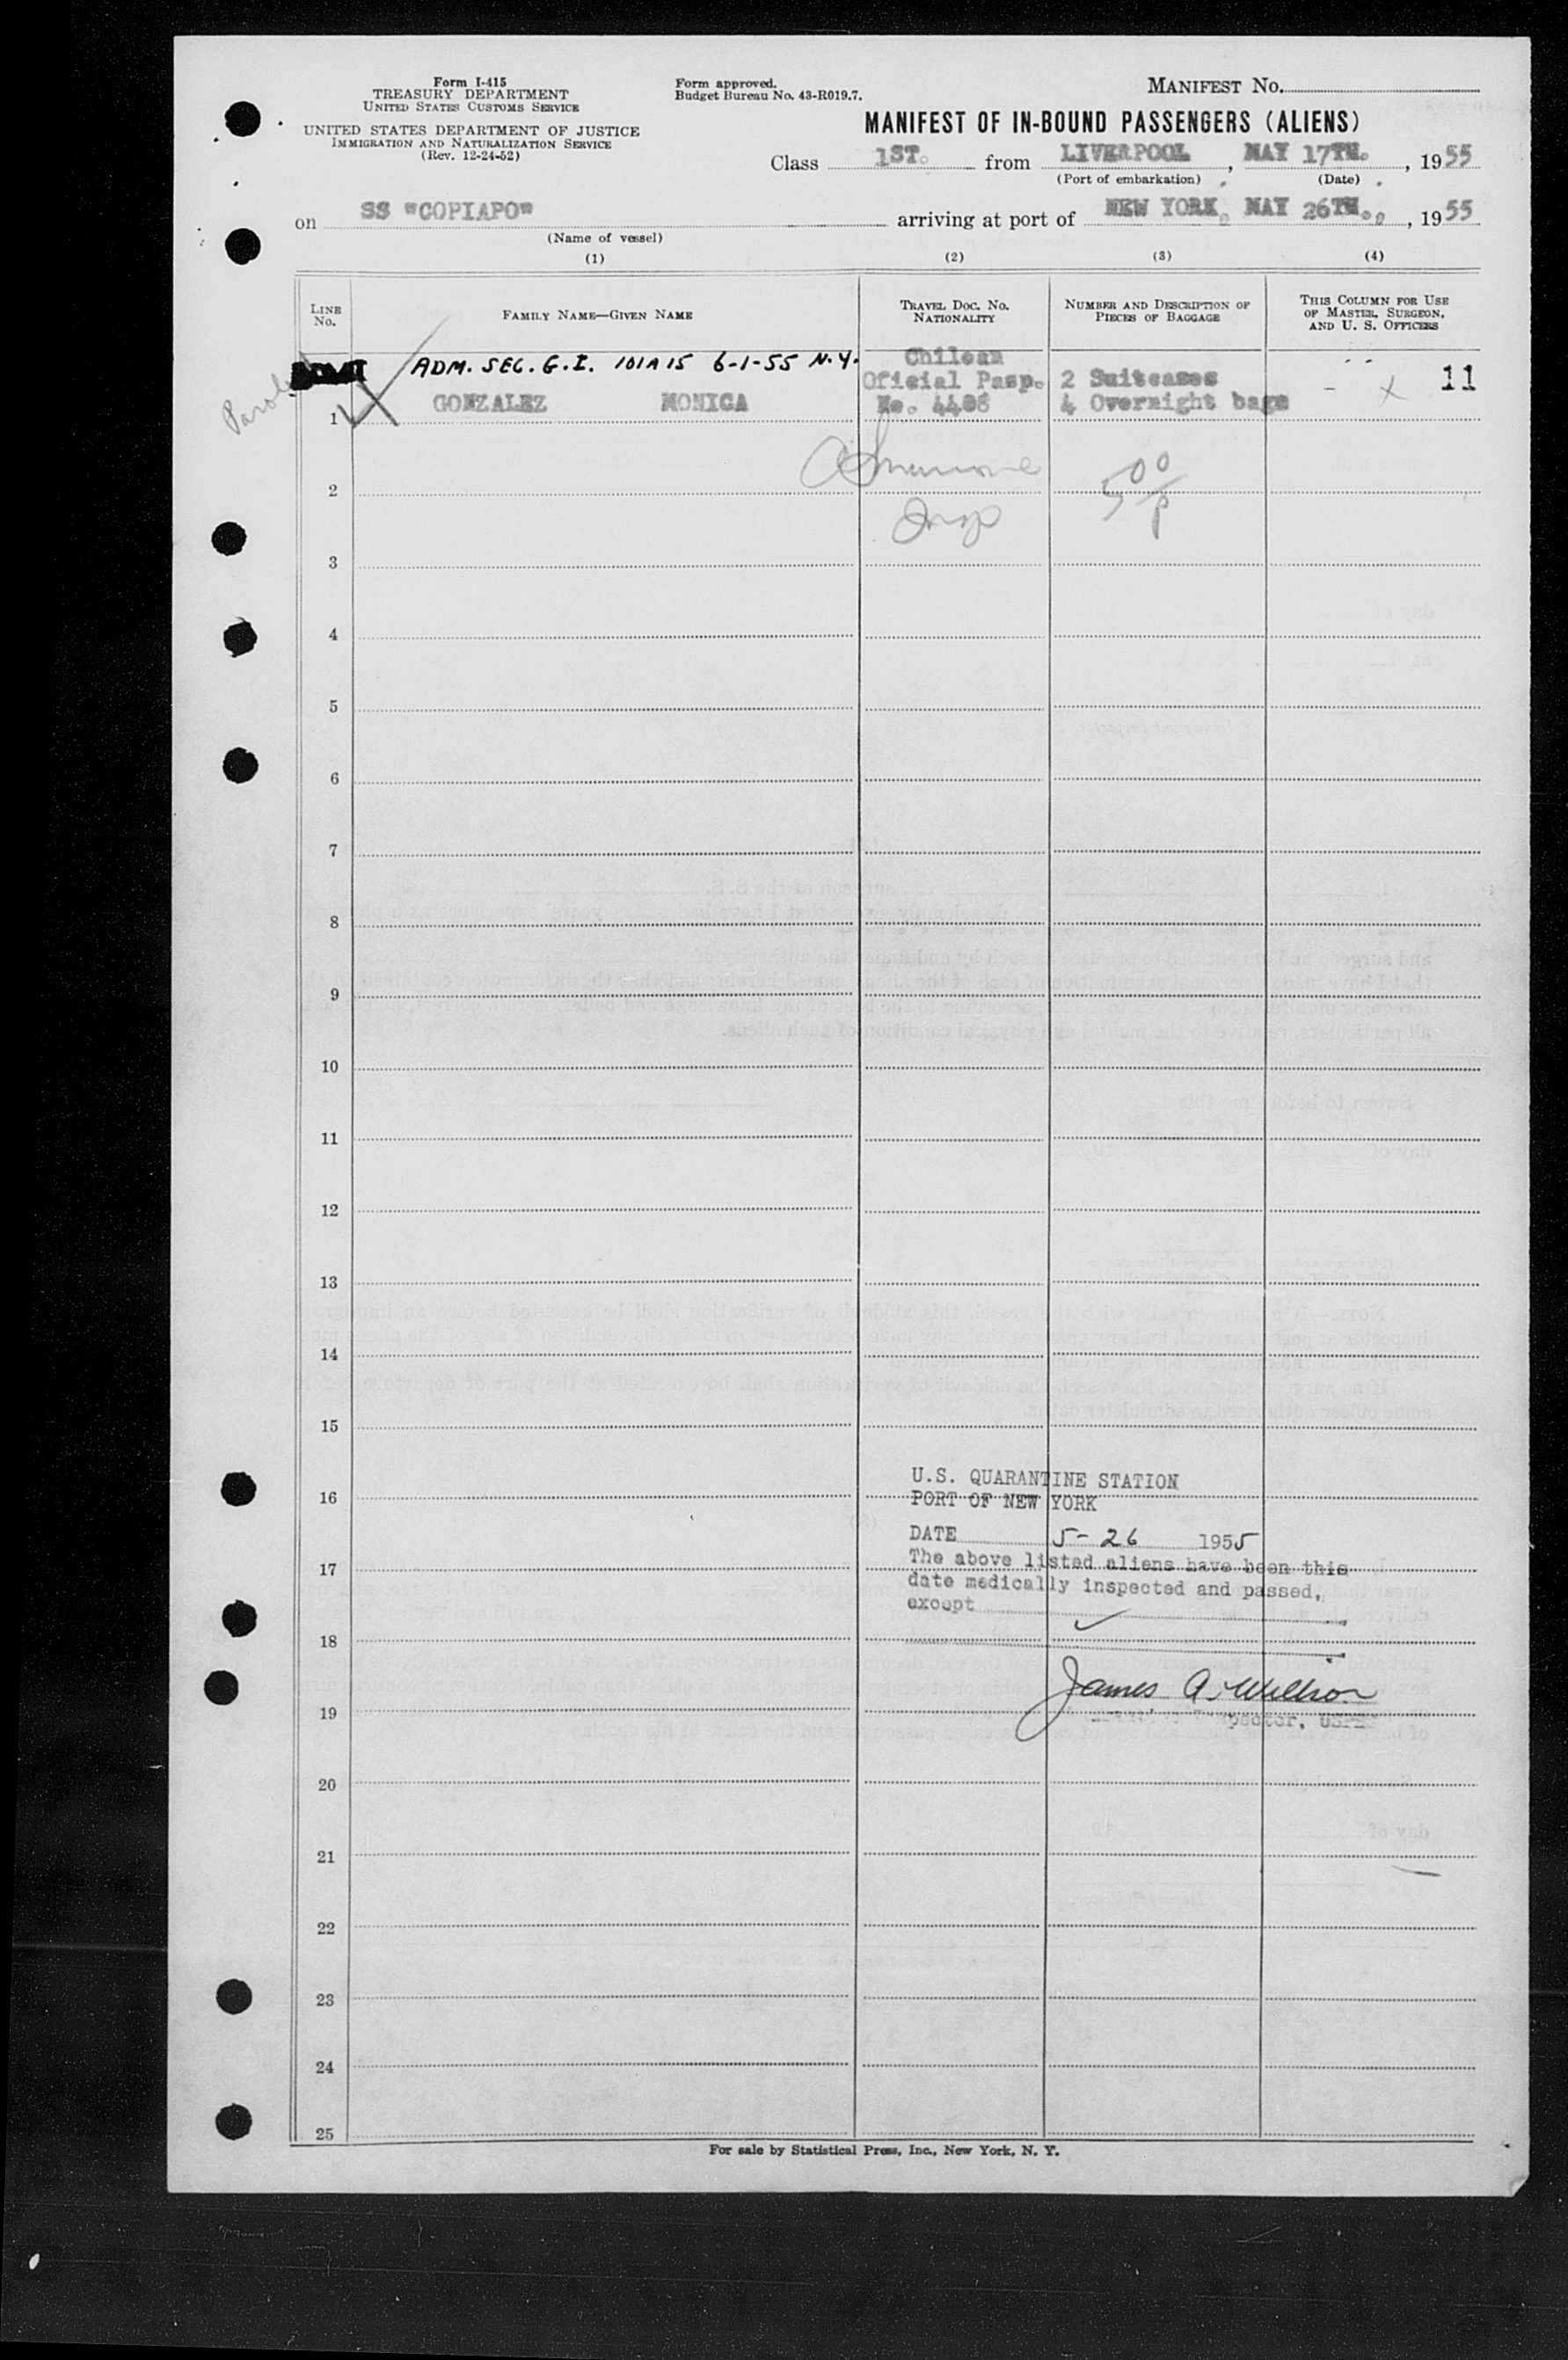 Form I-415
TREASURY DEPARTMENT
UNITED STATES CUSTOMS SERVICE
UNITED STATES DEPARTMENT OF JUSTICE
IMMIGRATION AND NATURALIZATION SERVICE
(Rev. 12-24-52)
Form approved.
Budget Bureau No. 43-R019.7.
MANIFEST NO.
MANIFEST OF IN-BOUND PASSENGERS (ALIENS)
Class 1ST. from LIVERPOOL, MAY 17TH., 1955
(Port of embarkation) (Date)
on SS "COPIAPO" arriving at port of NEW YORK, MAY 26TH., 1955
(Name of vessel)
(1) (2) (3) (4)
LINE No.
FAMILY NAME—GIVEN NAME
TRAVEL DOC. NO. NATIONALITY
NUMBER AND DESCRIPTION OF PIECES OF BAGGAGE
THIS COLUMN FOR USE OF MASTER, SURGEON, AND U. S. OFFICERS
Parole
ADM. SEC. G.I. 101A15 6-1-55 N.Y.
Chilean
Oficial Pasp. 2 Suitcases - X 11
1 GONZALEZ MONICA No. 4408 4 Overnight bags
2
Insp
3
4
5
6
7
8
9
10
11
12
13
14
15
U.S. QUARANTINE STATION
16 PORT OF NEW YORK
DATE 5-26 1955
17 The above listed aliens have been this
date medically inspected and passed,
except
18
James A. Willson
19 Inspector, USPHS
20
21
22
23
24
25
For sale by Statistical Press, Inc., New York, N. Y.